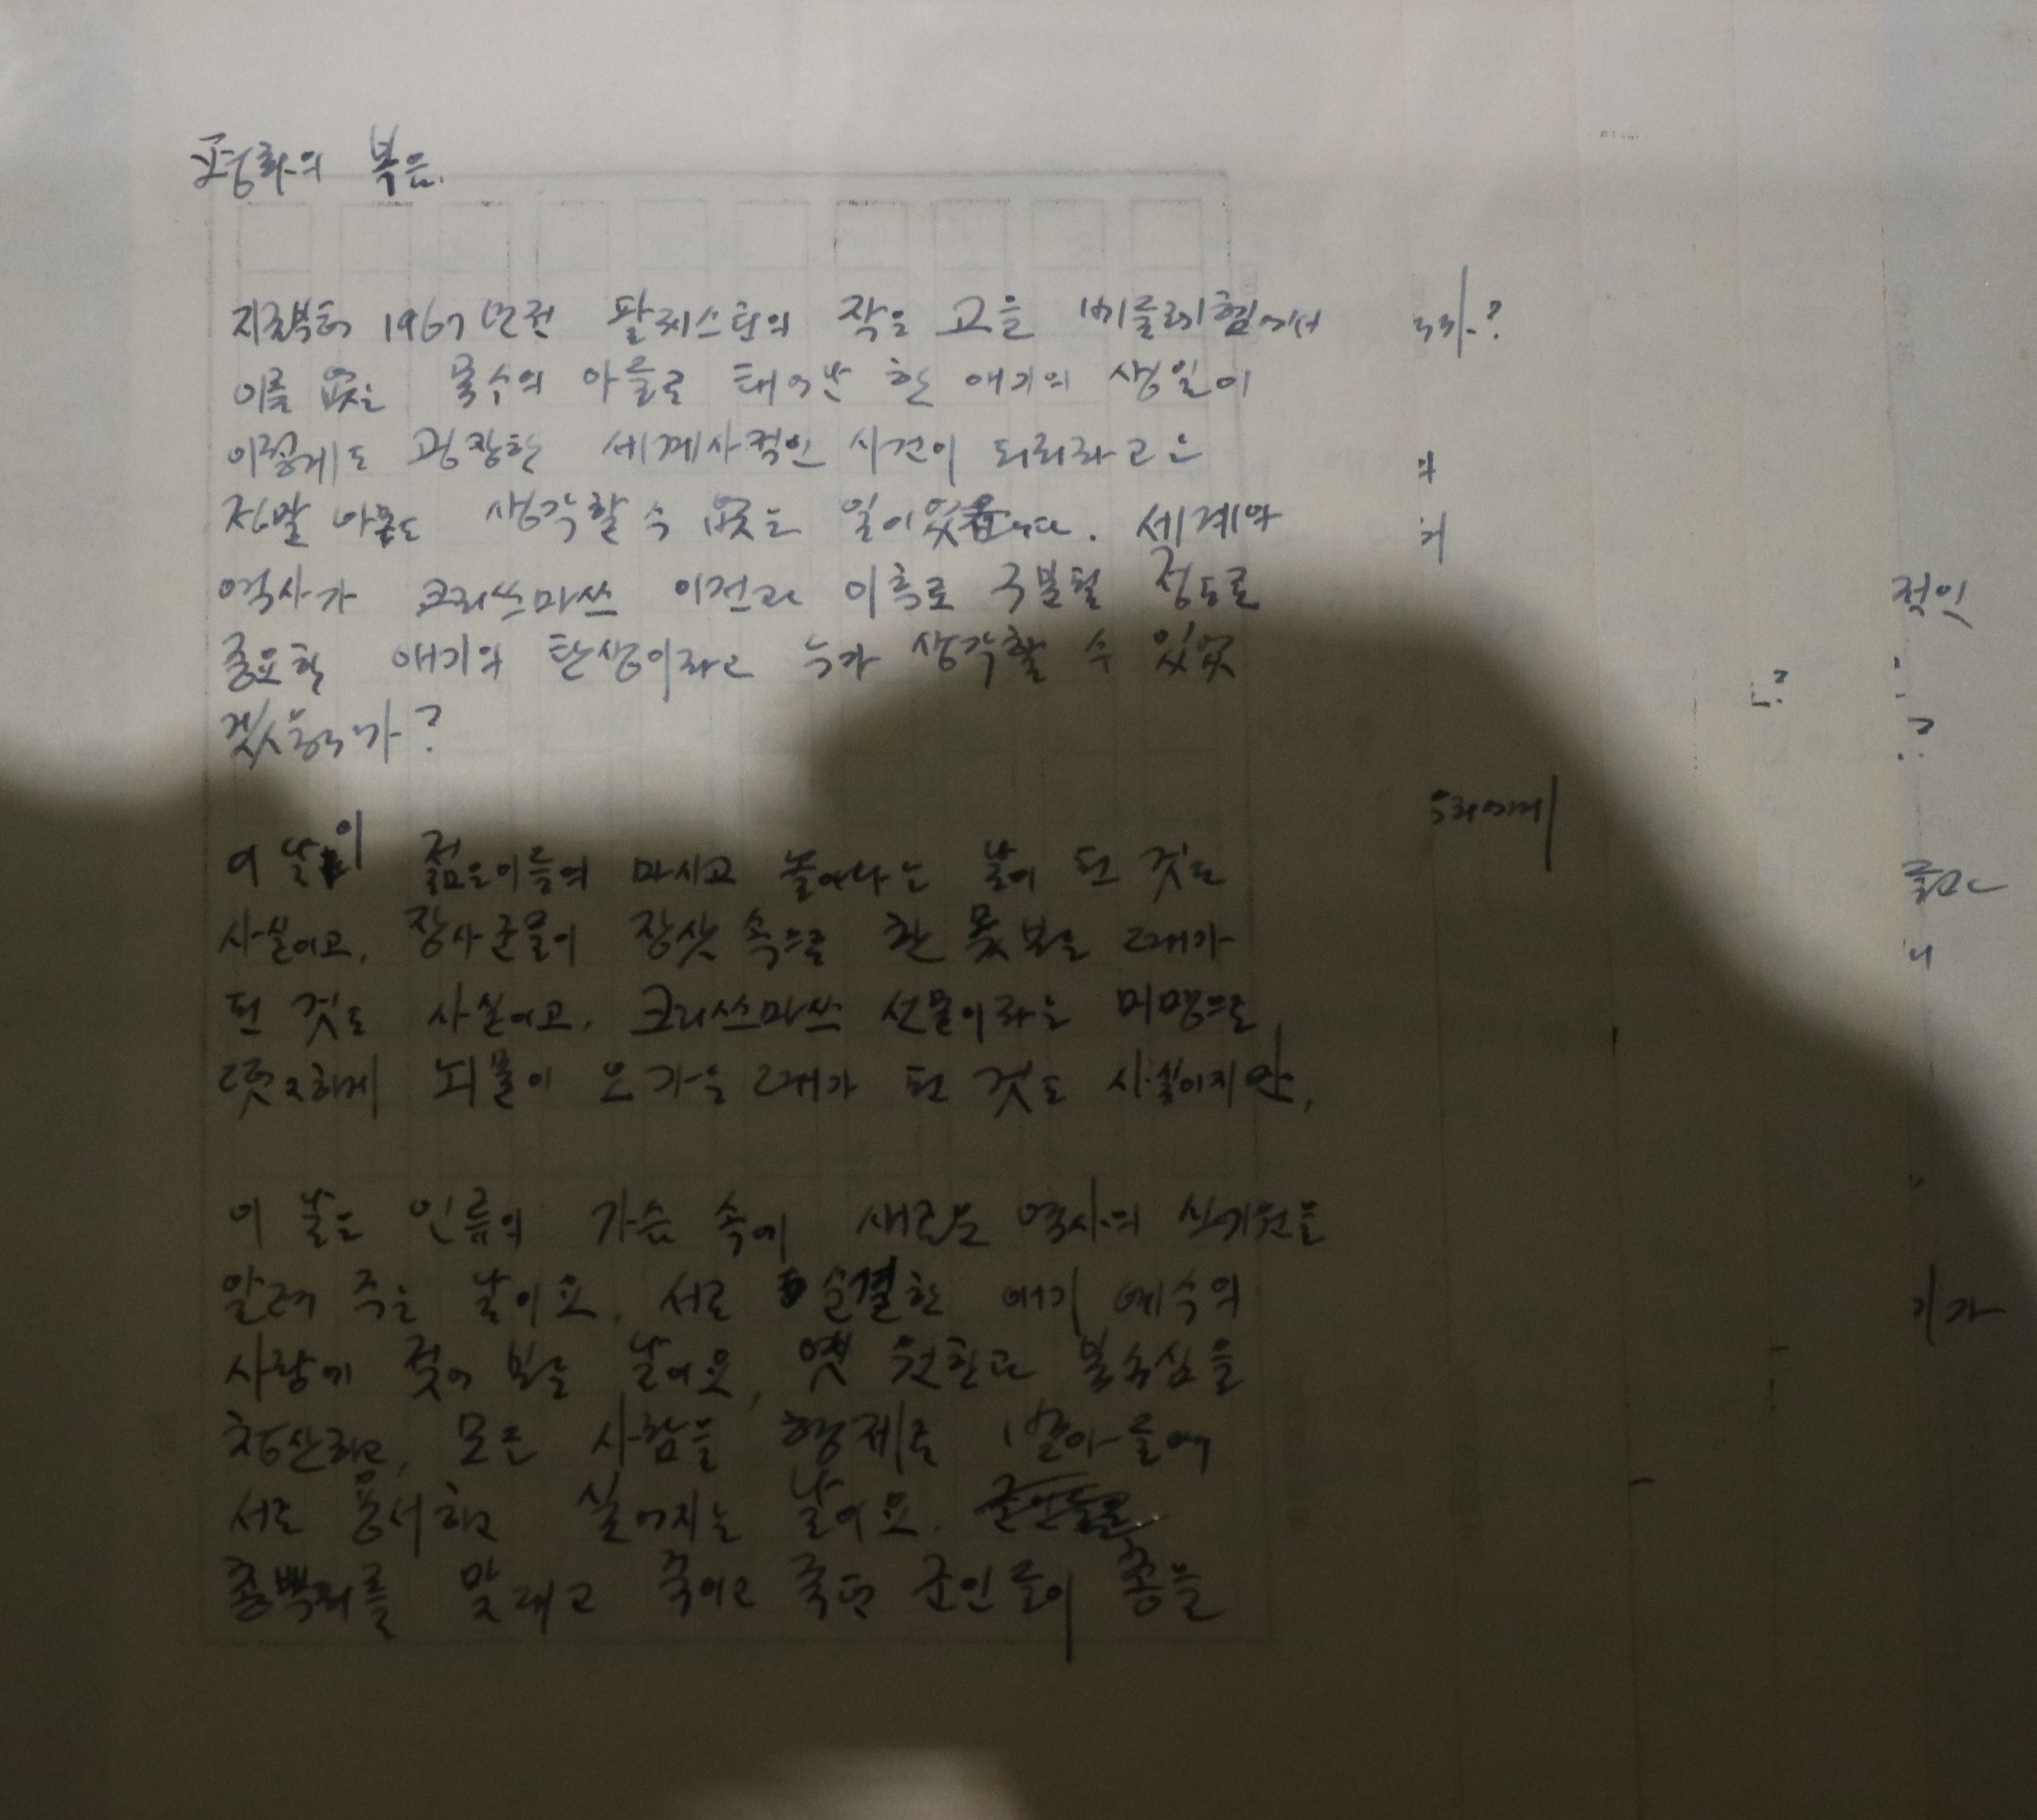 평화의 복음.
지금부터 1967년전 팔레스틴의 작은 고을 베들레헴에서
이름 없는 목수의 아들로 태어난 한 애기의 생일이
이렇게도 굉장한 세계사적인 사건이 되리라고는
정말 아무도 생각할 수 없는 일이었읍니다. 세계의
역사가 크리쓰마쓰 이전과 이후로 구분될 정도로
중요한 애기의 탄생이라고 누가 생각할 수 있었
겠읍니까?
이 날이 젊은이들의 마시고 놀아나는 날이 된 것도
사실이고, 장사군들이 장삿속으로 한 몫 보는 때가
된 것도 사실이고, 크리쓰마쓰 선물이라는 미명으로
떳떳하게 뇌물이 오가는 때가 된 것도 사실이지만,
이 날은 인류의 가슴 속에 새로운 역사의 신기원을
알려 주는 날이요, 서로 순결한 애기 예수의
사랑에 젖어 보는 날이요, 옛 원한과 복수심을
청산하고, 모든 사람을 형제로 받아들여
서로 용서하고 싶어지는 날이요. 군인들은
총뿌리를 맞대고 죽이고 죽던 군인들이 총을
니까?
의
적인
우리에게
들과
니
기가